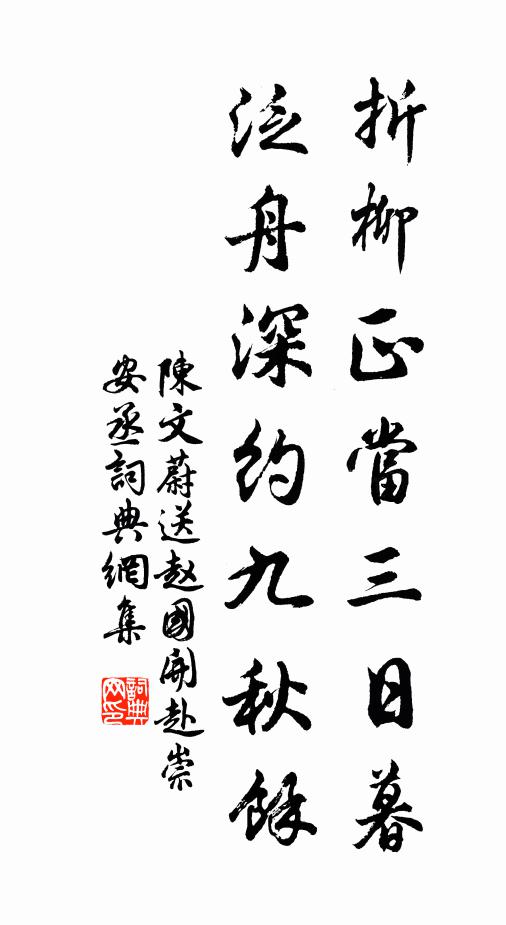 折柳正當三日暮
泛舟深約九秋餘
陳文蔚送赵國開赴崇
安丞詞典網集
詞典網印